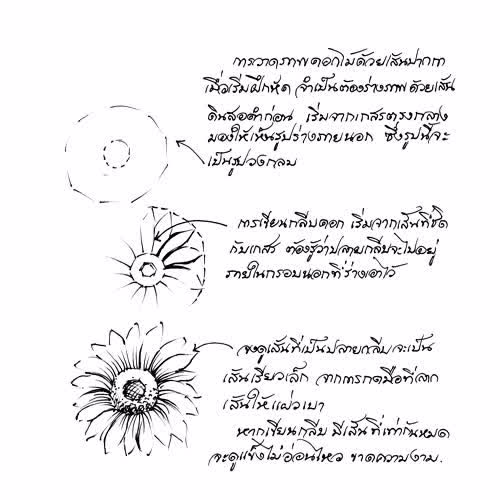 การวาดภาพดอกไม้ด้วยเส้นปากกา
เมื่อเริ่มฝึกหัด จำเป็นต้องร่างภาพด้วยเส้น
ดินสอดำก่อน เริ่มจากเกสรตรงกลาง
มองให้เห็นรูปร่างภายนอก ซึ่งรูปนี้จะ
เป็นรูปวงกลม
การเขียนกลีบดอก เริ่มจากเส้นที่ชิด
กับเกสร ต้องรู้ว่าปลายกลีบจะไปอยู่
ภายในกรอบนอกที่ร่างเอาไว้
จงดูเส้นที่เป็นปลายกลีบจะเป็น
เส้นเรียวเล็ก จากการกดมือที่ลาก
เส้นให้แผ่วเบา
หากเขียนกลีบ มีเส้นที่เท่ากันหมด
จะดูแข็งไม่อ่อนไหว ขาดความงาม.